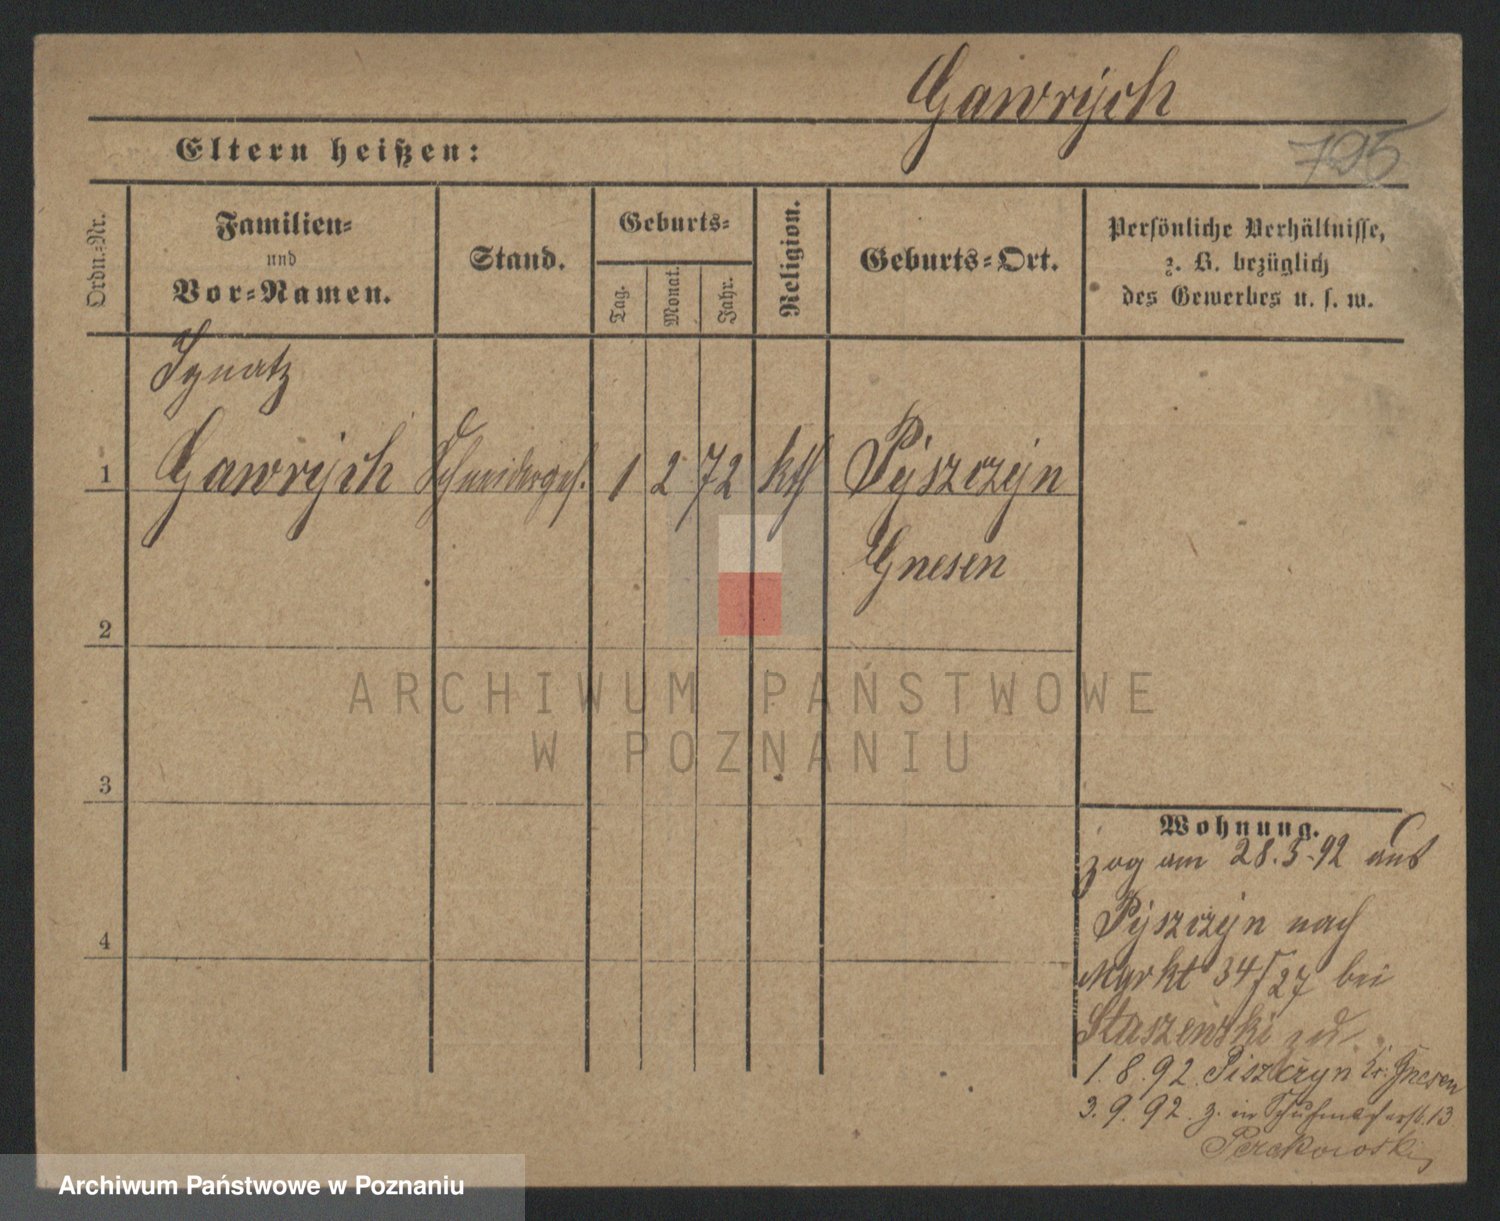 Gawrÿch
795
Eltern heißen:
Ordn.-Nr.
Familien-
und
Vor-Namen.
Stand.
Geburts-
Tag.
Monat.
Jahr.
Religion.
Geburts-Ort.
Persönliche Verhältnisse,
z. B. bezüglich
des Gewerbes u. s. w.
Ignatz
1 Gawrÿch Schneiderges. 1 2 72 kth Pÿszczÿn
Gnesen
2
3
4
ARCHIWUM PAŃSTWOWE
W POZNANIU
Wohnung.
zog am 28.5.92 aus
Pÿszczÿn nach
Markt 34/27 bei
Staszewski zu
1.8.92 Piszczyn Kr. Gnesen
3.9.92. z. in Schuhmacherst. 13
Archiwum Państwowe w Poznaniu